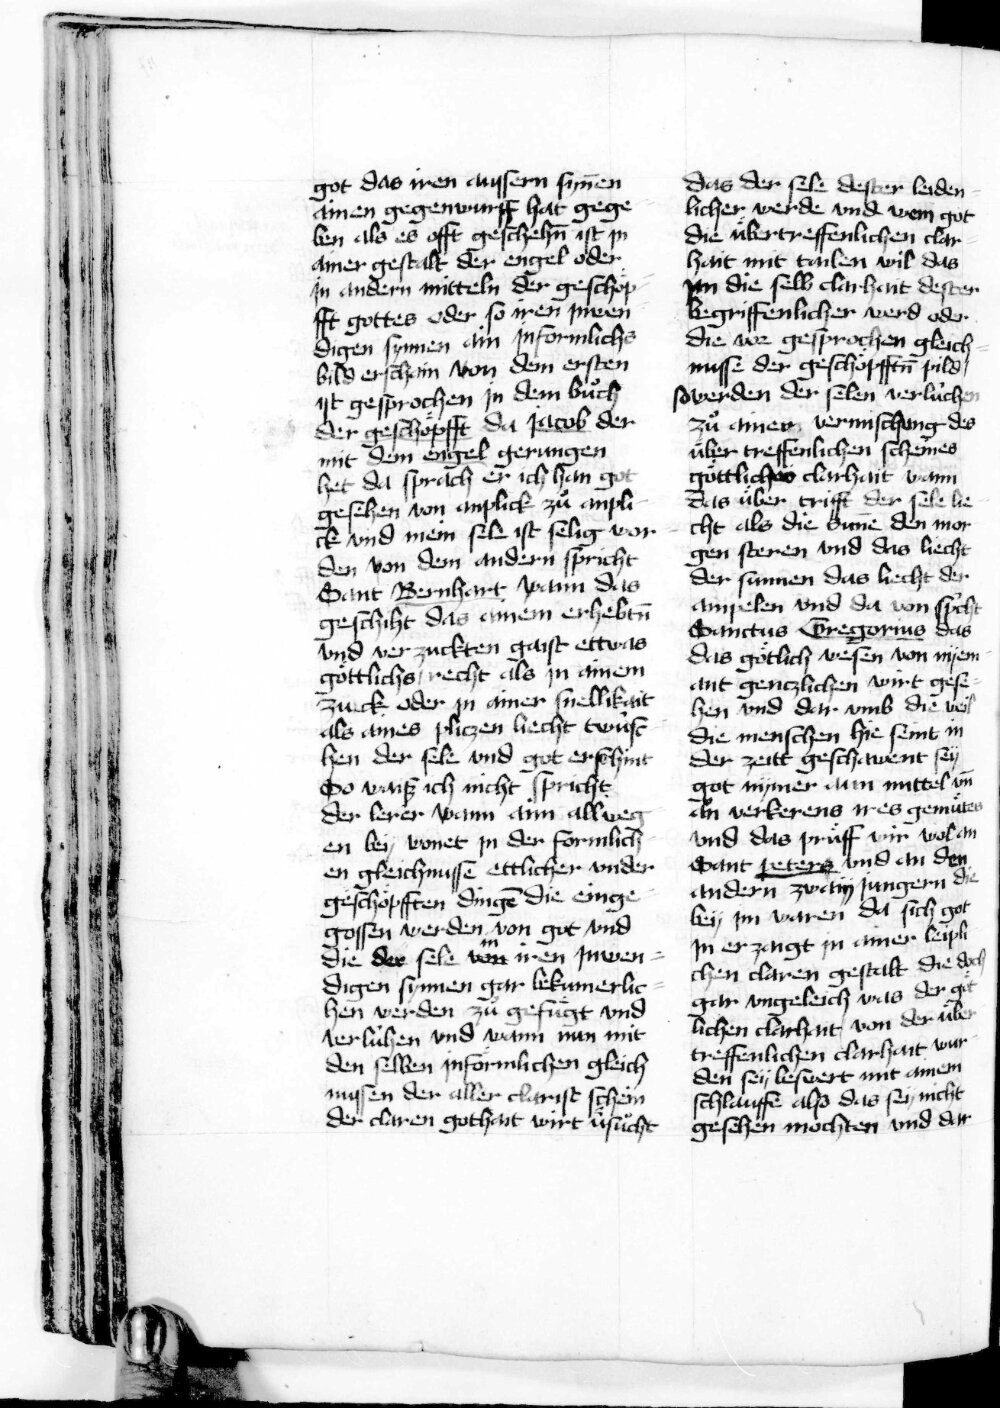 got das iren aussern sinnen
ainen gegenwurff hat gege
ben als es offt geschehn̄ ist jn
ainer gestalt der engel oder
jn andern mitteln der geschöp-
fft gottes oder so iren jnwen
digen synnen ain jnformlichs
bild erschain von dem ersten
ist gesprochen jn dem bůch
der geschöpfft da jacob der
mit dem engel gerungen
het da sprach er ich han got
gesehen von anplick zů anpli-
ck vnd mein sele ist selig wor-
den von dem andern spricht
Sant Bernhart wann das
geschiht das ainem erhebtn̄
vnd verzuckten gaist ettwas
göttlichs recht als jn ainem
zuck oder jn ainer snellikait
als aines pliczen liecht twüsc-
hen der sele vnd got erschint
So waiß ich nicht spricht
der lerer wann ain allweg
en bey wonet jn der formlich-
en gleichnusse ettlicher vnder
geschöpfften dinge die einge-
gossen werden von got vnd
die der sele von in iren jnwen=
digen synnen gar bekumerlic-
hen werden zů gefügt vnd
verlühen vnd wann nun mit
den selben jnformlichen gleich
nussen der aller clarist schein
der claren gothait wirt üsůcht
das der sele dester leiden-
licher werde vnd wem got
die übertreffenlichen clar-
hait mit tailen wil das
jm die selb clarhait dester
begriffenlicher werd oder
die vor gesprochen gleich=
nusse der geschöpfftn̄ pild
so werden der selen verlühen
zů ainem vermischung des
über treffenlichen schemes
göttliches clarhait wann
Das über trifft der sele lie-
cht als die sunne den mor
gen steren vnd das liecht
der sunnen das liecht der
ampelen vnd da von spicht
Sanctus Gregorius das
das götlich wesen von nyem-
ant genczlichen wirt gese-
hen vnd dar vmb die weil
die menschen hie seint in
der zeitt geschawent sey
got nymer ann mittel vn̄
ān verkerens ires gemütes
vnd das prüff wir wol an
Sant peters vnd an den
andern zwaiy jungern die
bey jm waren da sich got
jn erzaigt jn ainer leipli
chen claren gestalt die doch
gar vngeleich was der göt
lichen clarhait von der über
treffenlichen clarhait wur
den sey beswert mit ainem
schlauffe also das sey nicht
gesehen mochten vnd dar